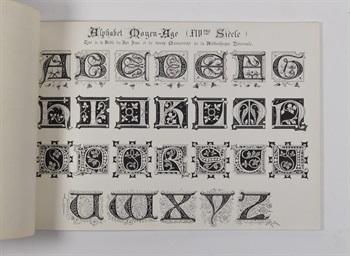 Alphabet Moyen-Age (XIVme Siècle)
Tiré de la Bible de San Juan et de divers Manuscrits de la Bibliothèque Nationale.
A B C D E F G
H I K L M N
O P Q R S T
U W X Y Z